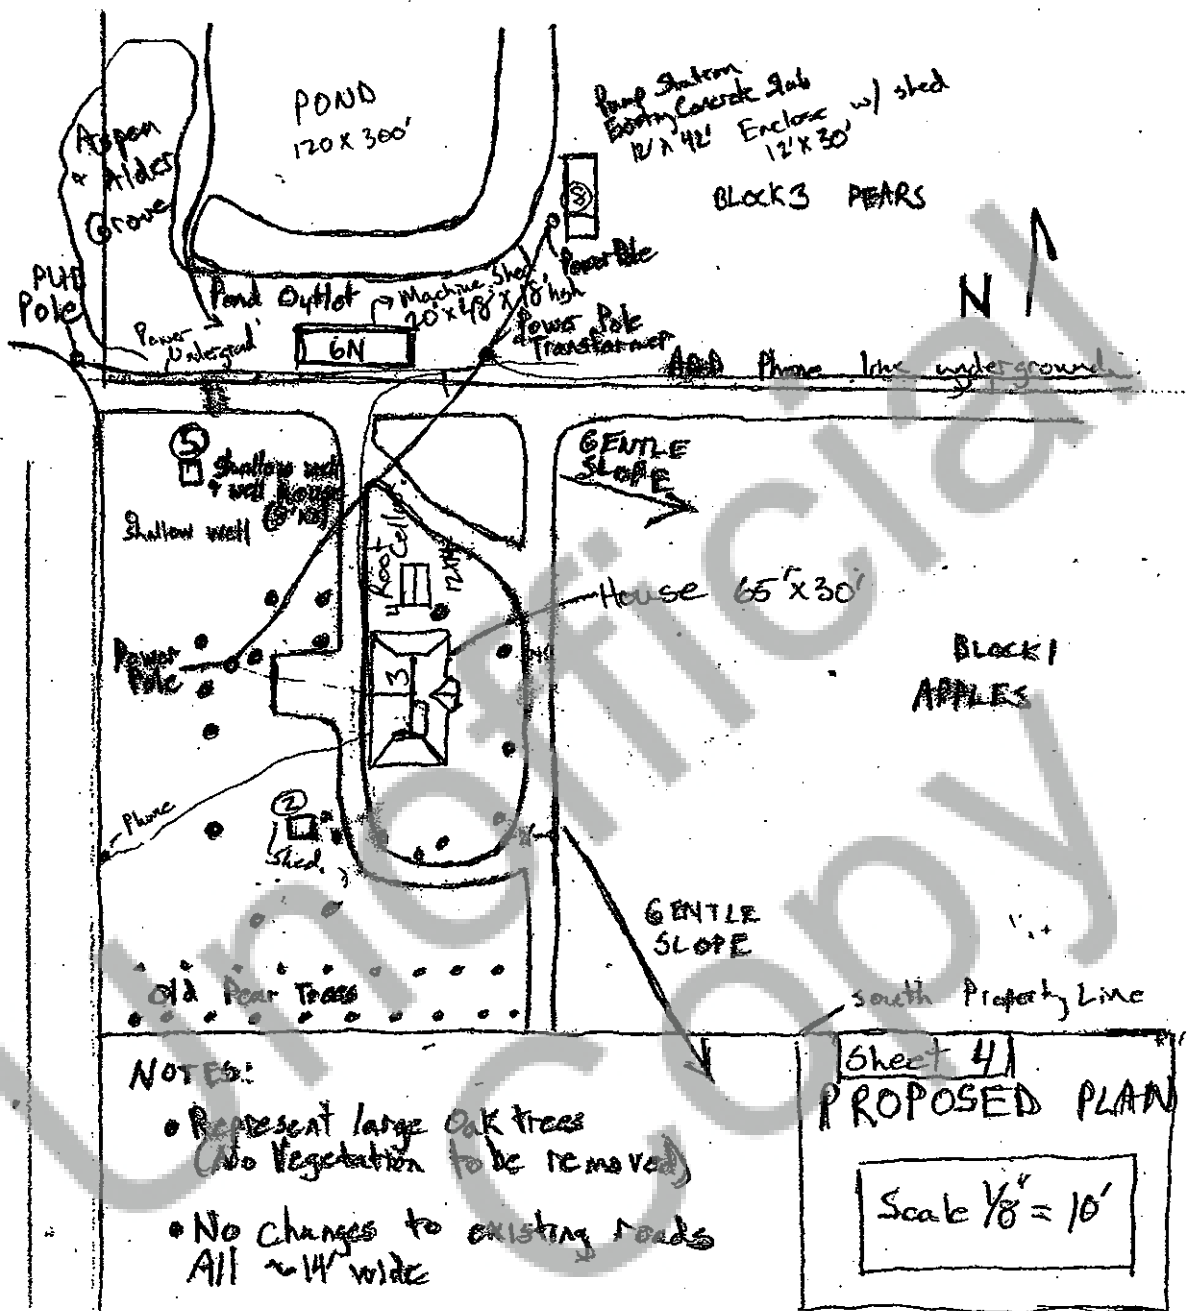 POND
120 X 300'
Aspen
& Alder
Grove
Pump Station
Existing Concrete Slab
12' X 42' Enclose w/ shed
12' X 30'
BLOCK 3 PEARS
Power Pole
PUD
Pole
Pond Outlet
Machine Shed
20' x 48' x 18' high
6N
Power
Undergrod
Power Pole
Transformer
N
Phone line underground
5
Shallow well
& well house
Shallow well
GENTLE
SLOPE
Root
Cellar
House 65' x 30'
Power
Pole
3
BLOCK 1
APPLES
Phone
2
Shed
GENTLE
SLOPE
Old Pear Trees
South Property Line
NOTES:
• Represent large Oak trees
(No Vegetation to be removed)
• No changes to existing roads
All ~14' wide
Sheet 4
PROPOSED PLAN
Scale 1/8" = 10'
Unofficial
Copy